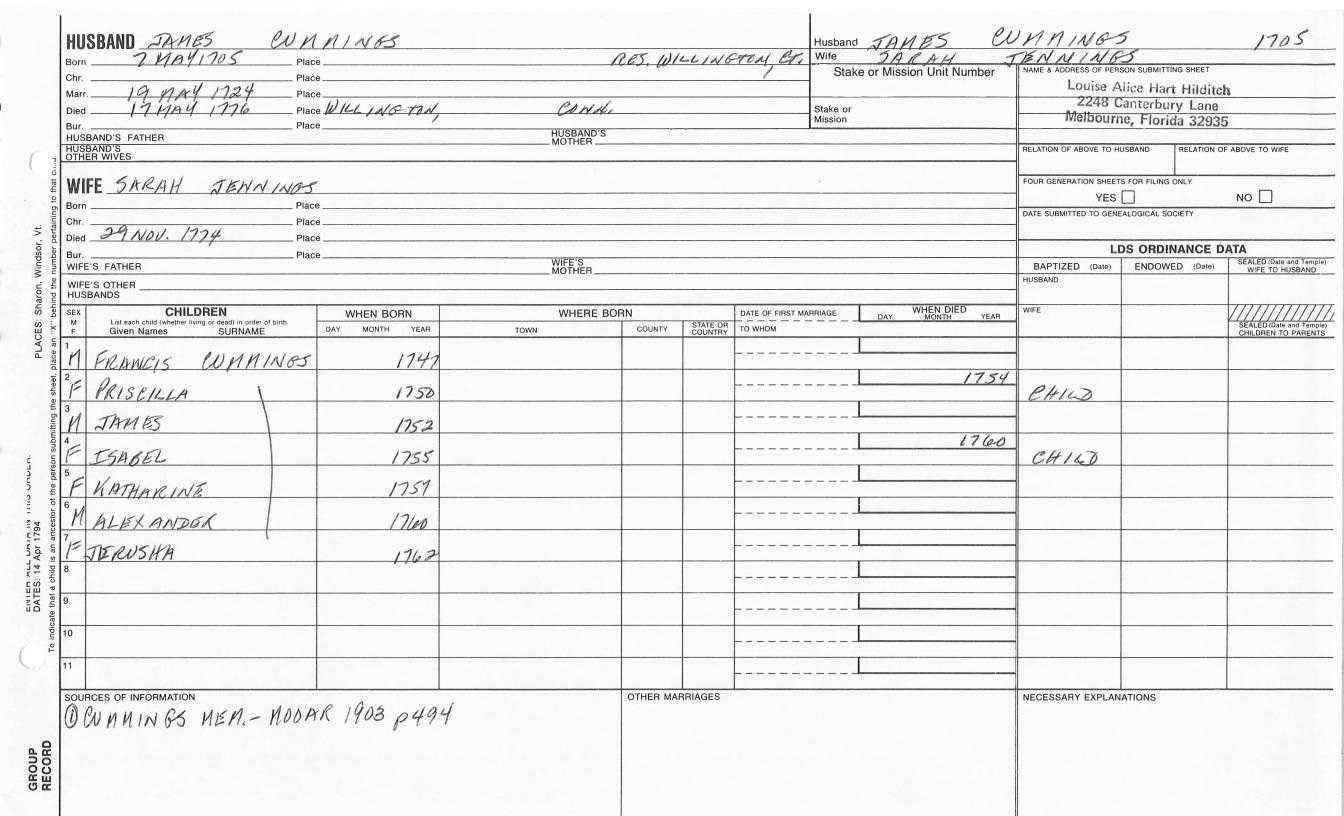 HUSBAND JAMES CUMMINGS
Born 7 MAY 1705 Place RES. WILLINGTON, CT.
Chr. Place
Marr. 19 MAY 1724 Place
Died 17 MAY 1776 Place WILLINGTON, CONN.
Bur. Place
HUSBAND'S FATHER HUSBAND'S MOTHER
HUSBAND'S OTHER WIVES
Husband JAMES CUMMINGS 1705
Wife SARAH JENNINGS
Stake or Mission Unit Number
Stake or Mission
NAME & ADDRESS OF PERSON SUBMITTING SHEET
Louise Alice Hart Hilditch
2248 Canterbury Lane
Melbourne, Florida 32935
RELATION OF ABOVE TO HUSBAND RELATION OF ABOVE TO WIFE
FOUR GENERATION SHEETS FOR FILING ONLY
YES NO
DATE SUBMITTED TO GENEALOGICAL SOCIETY
WIFE SARAH JENNINGS
Born Place
Chr. Place
Died 29 NOV. 1774 Place
Bur. Place
WIFE'S FATHER WIFE'S MOTHER
WIFE'S OTHER HUSBANDS
LDS ORDINANCE DATA
BAPTIZED (Date) ENDOWED (Date) SEALED (Date and Temple) WIFE TO HUSBAND
HUSBAND
WIFE
SEALED (Date and Temple) CHILDREN TO PARENTS
SEX M F
CHILDREN
List each child (whether living or dead) in order of birth
Given Names SURNAME
WHEN BORN
DAY MONTH YEAR
WHERE BORN
TOWN COUNTY STATE OR COUNTRY
DATE OF FIRST MARRIAGE
TO WHOM
WHEN DIED
DAY MONTH YEAR
1 M FRANCIS CUMMINGS 1747
2 F PRISCILLA 1750 1754 CHILD
3 M JAMES 1752
4 F ISABEL 1755 1760 CHILD
5 F KATHARINE 1757
6 M ALEXANDER 1760
7 F JERUSHA 1762
8
9
10
11
SOURCES OF INFORMATION
① CUMMINGS MEM.- MODAR 1903 p494
OTHER MARRIAGES
NECESSARY EXPLANATIONS
PLACES: Sharon, Windsor, Vt.
DATES: 14 Apr 1794
To indicate that a child is an ancestor of the person submitting the sheet, place an "X" behind the number pertaining to that
GROUP RECORD